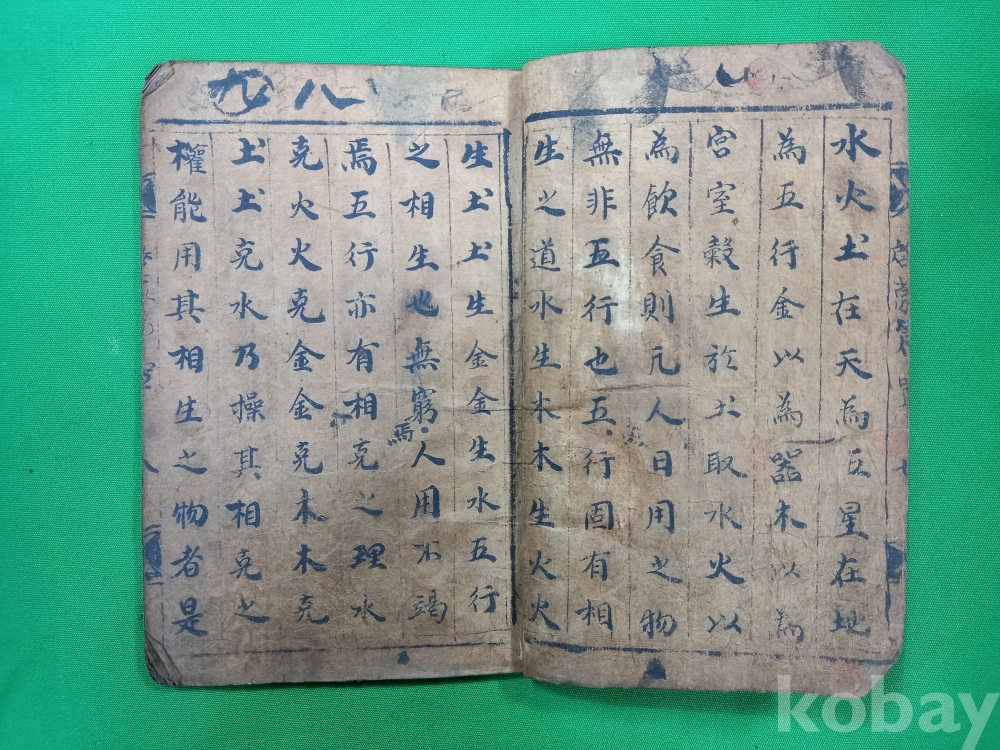 水火土在天為五星在地
為五行金以為器木以為
宮室穀生於土取水火以
為飮食則凡人日用之物
無非五行也五行固有相
生之道水生木木生火火
生土土生金金生水五行
之相生也無窮人用不竭
焉
焉五行亦有相克之理水
克火火克金金克木木克
土土克水乃操其相克之
權能用其相生之物者是
八
九
kobay